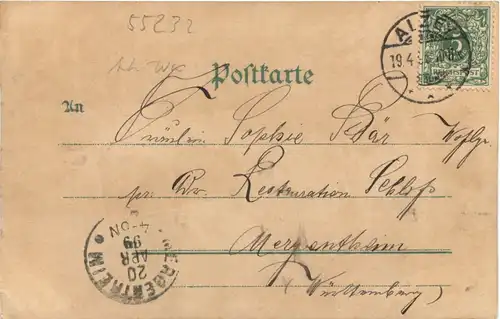 55232
Postkarte
ALZEY
19.4.
An
Fräulein Sophie Bär Wohlgb.
pr. Adr. Restauration Schloß
Mergentheim
Württemberg)
MERGENTHEIM
20
APR
99
4-5N